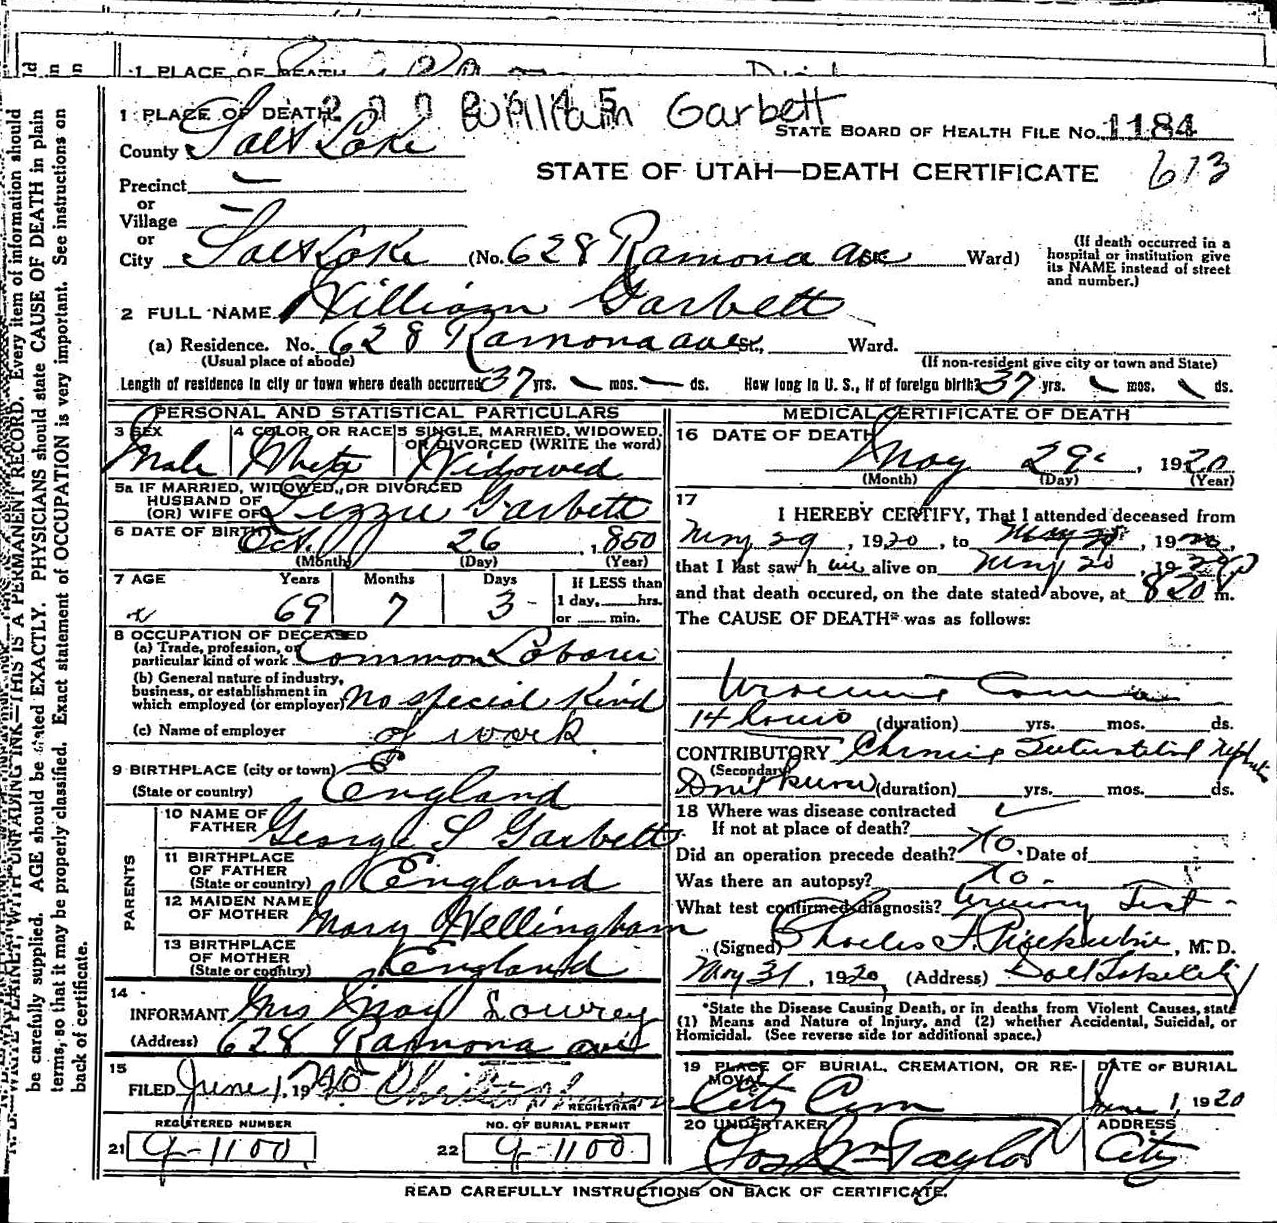 1 PLACE OF DEATH
William Garbett
STATE BOARD OF HEALTH FILE NO. 1184
County Salt Lake
STATE OF UTAH—DEATH CERTIFICATE 613
Precinct —
or
Village —
or
City Salt Lake (No. 628 Ramona ave Ward)
(If death occurred in a hospital or institution give its NAME instead of street and number.)
2 FULL NAME William Garbett
(a) Residence. No. 628 Ramona ave St., Ward.
(Usual place of abode) (If non-resident give city or town and State)
Length of residence in city or town where death occurred 37 yrs. — mos. — ds. How long in U. S., if of foreign birth? 37 yrs. mos. ds.
PERSONAL AND STATISTICAL PARTICULARS
3 SEX Male
4 COLOR OR RACE White
5 SINGLE, MARRIED, WIDOWED, OR DIVORCED (WRITE the word) Widowed
5a IF MARRIED, WIDOWED, OR DIVORCED
HUSBAND OF
(OR) WIFE OF Lizzie Garbett
6 DATE OF BIRTH Oct. 26, 1850
(Month) (Day) (Year)
7 AGE Years Months Days If LESS than
69 7 3 1 day, hrs.
or min.
8 OCCUPATION OF DECEASED
(a) Trade, profession, or
particular kind of work Common Laborer
(b) General nature of industry,
business, or establishment in
which employed (or employer) No special kind
(c) Name of employer of work
9 BIRTHPLACE (city or town)
(State or country) England
PARENTS
10 NAME OF
FATHER George S Garbett
11 BIRTHPLACE
OF FATHER
(State or country) England
12 MAIDEN NAME
OF MOTHER Mary Wellingham
13 BIRTHPLACE
OF MOTHER
(State or country) England
14
INFORMANT Mrs May Lowrey
(Address) 628 Ramona ave
15
FILED June 1, 19
REGISTRAR
REGISTERED NUMBER NO. OF BURIAL PERMIT
21 9-1100 22 9-1100
MEDICAL CERTIFICATE OF DEATH
16 DATE OF DEATH
May 29, 1920
(Month) (Day) (Year)
17
I HEREBY CERTIFY, That I attended deceased from
May 29, 1920, to May, 1920,
that I last saw him alive on May, 19
and that death occured, on the date stated above, at 820 m.
The CAUSE OF DEATH* was as follows:
Uraemic Coma
14 hours (duration) yrs. mos. ds.
CONTRIBUTORY Chronic Interstitial Neph
(Secondary)
(duration) yrs. mos. ds.
18 Where was disease contracted
If not at place of death?
Did an operation precede death? No. Date of
Was there an autopsy? No.
What test confirmed diagnosis? Urinary Test
(Signed) Charles F., M. D.
May 31, 1920 (Address) Salt Lake City
*State the Disease Causing Death, or in deaths from Violent Causes, state
(1) Means and Nature of Injury, and (2) whether Accidental, Suicidal, or
Homicidal. (See reverse side for additional space.)
19 PLACE OF BURIAL, CREMATION, OR RE-
MOVAL City Cem
DATE OF BURIAL June 1, 1920
20 UNDERTAKER Jos Wm Taylor
ADDRESS City
READ CAREFULLY INSTRUCTIONS ON BACK OF CERTIFICATE.
N. B.—WRITE PLAINLY, WITH UNFADING INK—THIS IS A PERMANENT RECORD. Every item of information should
be carefully supplied. AGE should be stated EXACTLY. PHYSICIANS should state CAUSE OF DEATH in plain
terms, so that it may be properly classified. Exact statement of OCCUPATION is very important. See instructions on
back of certificate.